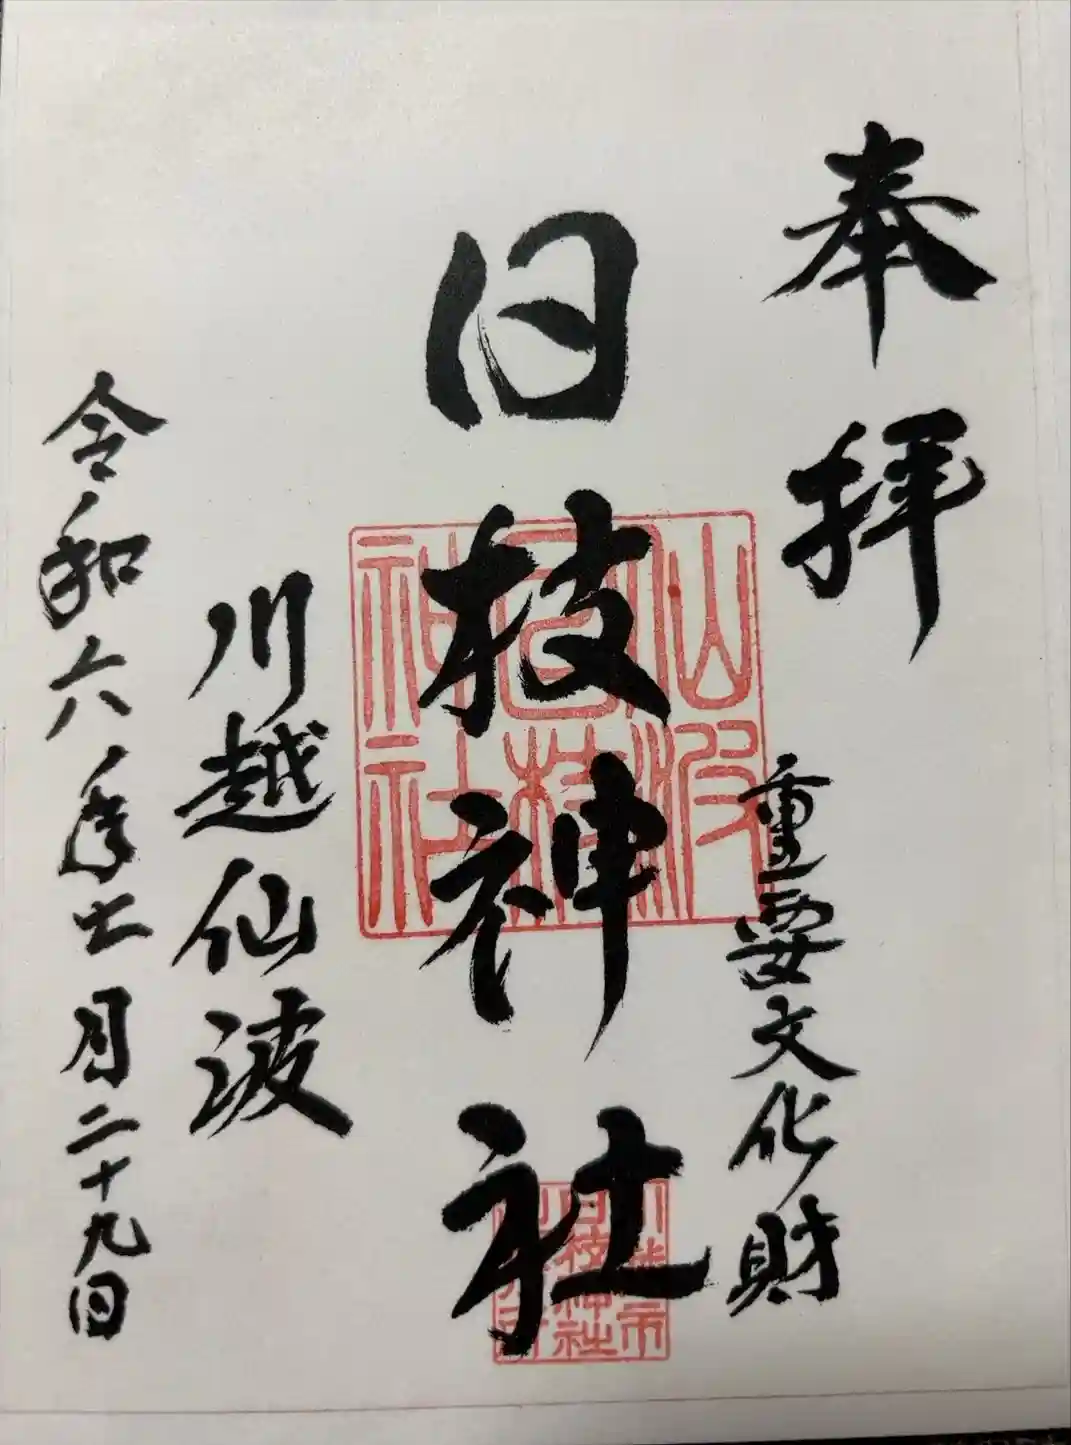 奉拝
重要文化財
日枝神社
川越仙波
令和六年十一月二十九日
仙波
日枝
神社
川越市
日枝神社